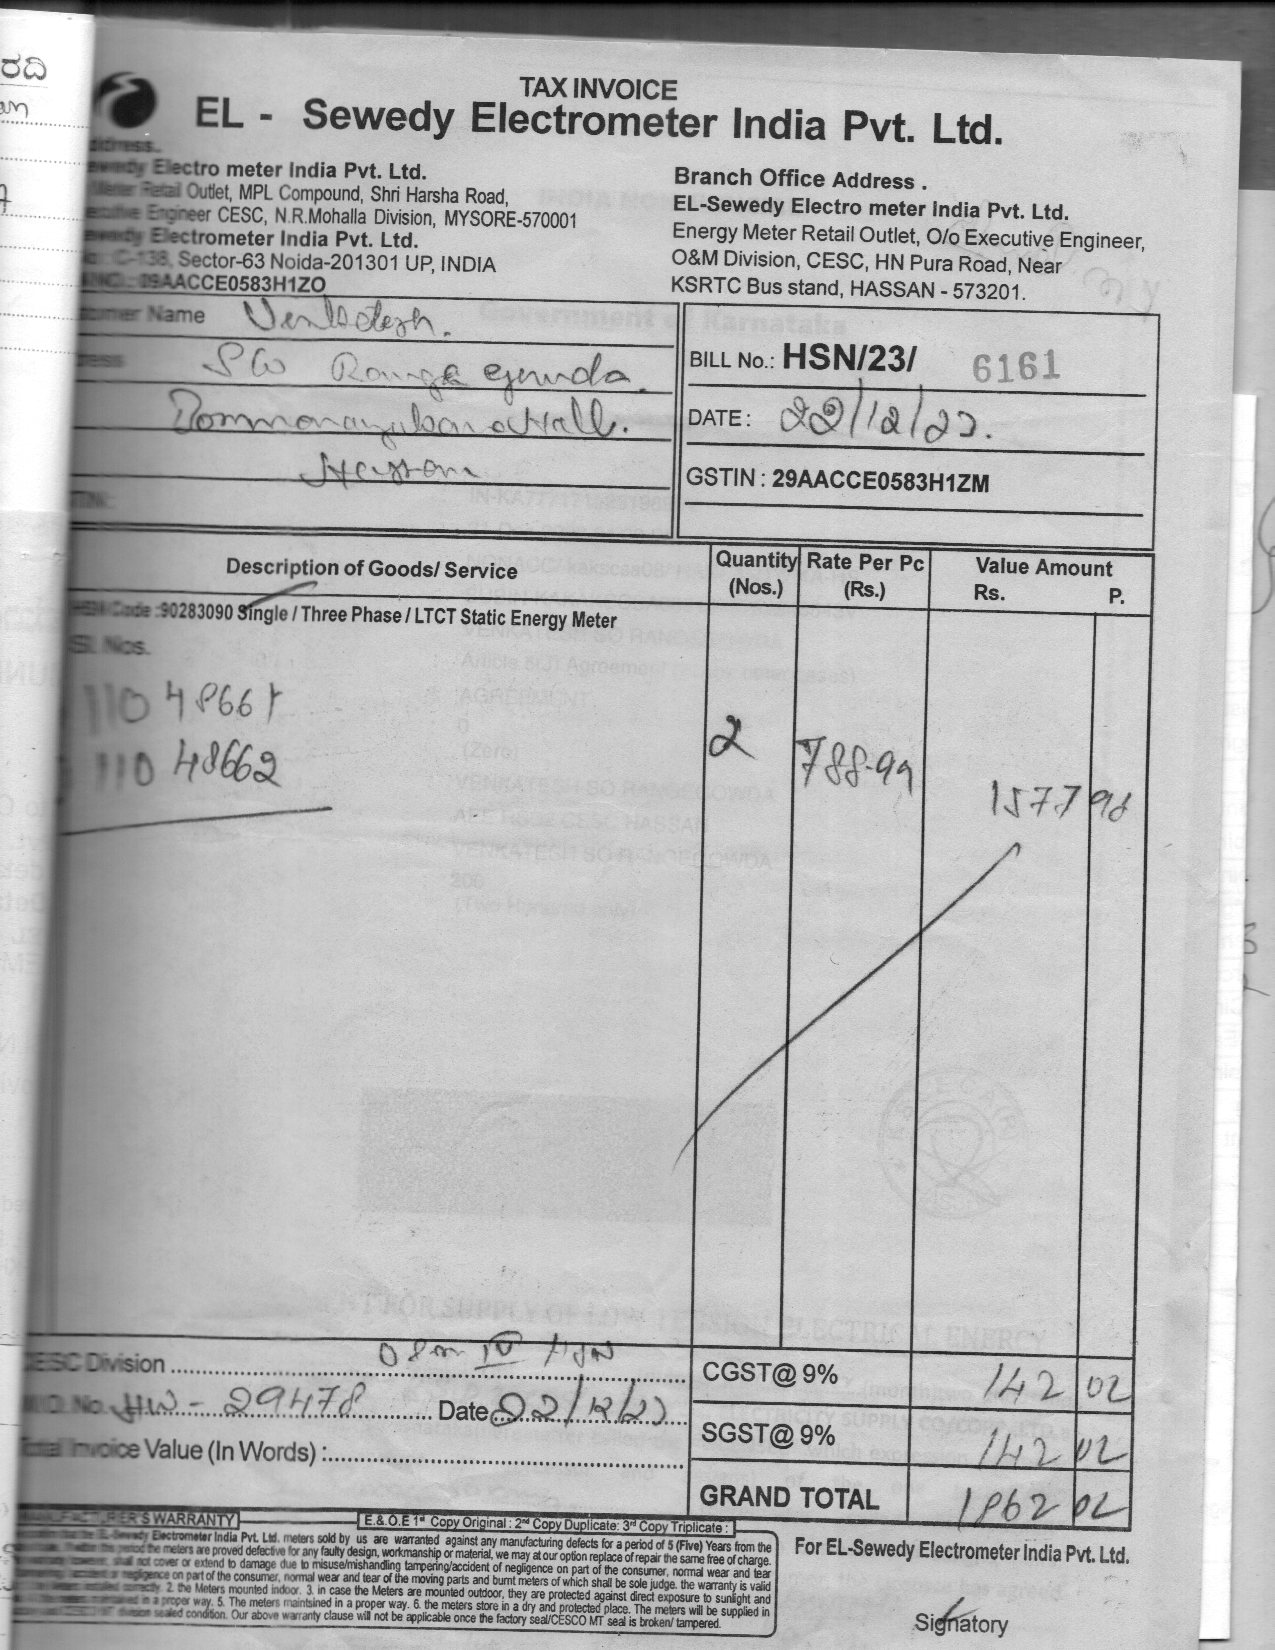 ರದಿ
TAX INVOICE
EL - Sewedy Electrometer India Pvt. Ltd.
Address.
Sewedy Electro meter India Pvt. Ltd.
Meter Retail Outlet, MPL Compound, Shri Harsha Road,
Executive Engineer CESC, N.R.Mohalla Division, MYSORE-570001
Sewedy Electrometer India Pvt. Ltd.
C-138, Sector-63 Noida-201301 UP, INDIA
29AACCE0583H1ZO
Branch Office Address .
EL-Sewedy Electro meter India Pvt. Ltd.
Energy Meter Retail Outlet, O/o Executive Engineer,
O&M Division, CESC, HN Pura Road, Near
KSRTC Bus stand, HASSAN - 573201.
Name Venkatesh.
S/o Rangegowda.
Hassan
BILL No.: HSN/23/ 6161
DATE : 22/12/23.
GSTIN : 29AACCE0583H1ZM
Description of Goods/ Service
Quantity (Nos.)
Rate Per Pc (Rs.)
Value Amount
Rs. P.
HSN Code :90283090 Single / Three Phase / LTCT Static Energy Meter
Sl. Nos.
110 48661
110 48662
2 788-99 1577 98
CESC Division
No. HW - 29478 Date 22/12/23
Total Invoice Value (In Words) :
CGST@ 9% 142 02
SGST@ 9% 142 02
GRAND TOTAL 1862 02
MANUFACTURER'S WARRANTY
E.& O.E 1st Copy Original : 2nd Copy Duplicate: 3rd Copy Triplicate :
Electrometer India Pvt. Ltd. meters sold by us are warranted against any manufacturing defects for a period of 5 (Five) Years from the
the period the meters are proved defective for any faulty design, workmanship or material, we may at our option replace of repair the same free of charge.
shall not cover or extend to damage due to misuse/mishandling tampering/accident of negligence on part of the consumer, normal wear and tear
negligence on part of the consumer, normal wear and tear of the moving parts and burnt meters of which shall be sole judge. the warranty is valid
correctly. 2. the Meters mounted indoor. 3. in case the Meters are mounted outdoor, they are protected against direct exposure to sunlight and
in a proper way. 5. The meters maintsined in a proper way. 6. the meters store in a dry and protected place. The meters will be supplied in
sealed condition. Our above warranty clause will not be applicable once the factory seal/CESCO MT seal is broken/ tampered.
For EL-Sewedy Electrometer india Pvt. Ltd.
Signatory